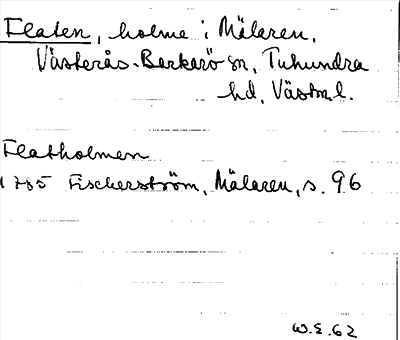 Flaten, holme i Mälaren,
Västerås-Barkarö sn, Tuhundra
hd, Västml.
Flatholmen
1785 Fischerström, Mälaren, s. 96
W.E. 62